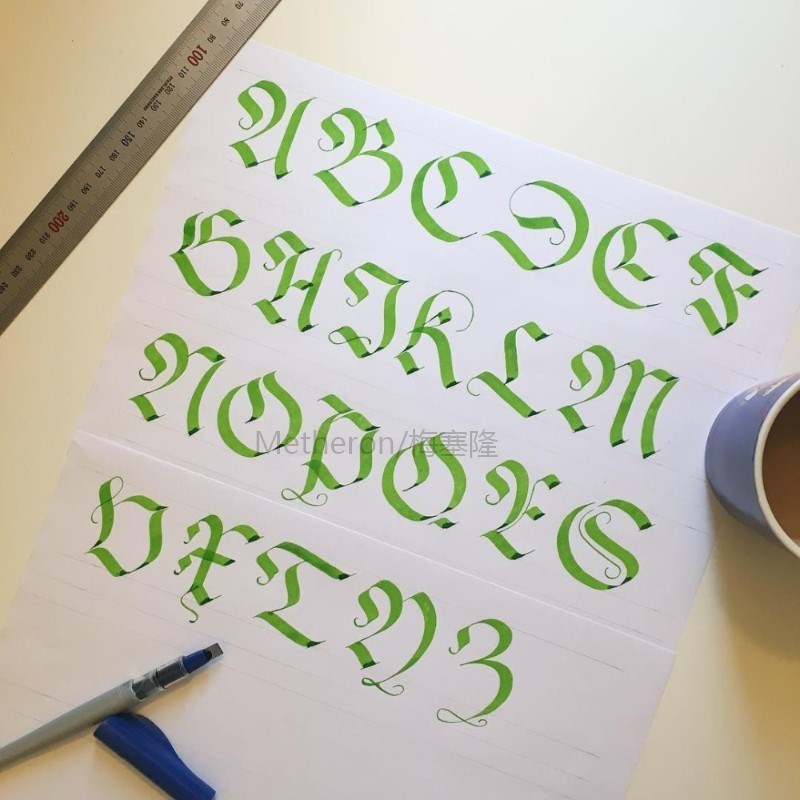 70 80 90 100 110 120 130 140 150 160 170 180 190 200 210 220 230
A B C D E F
G H I K L M
N O P Q R S
Metheron/梅塞隆
V X T Y Z